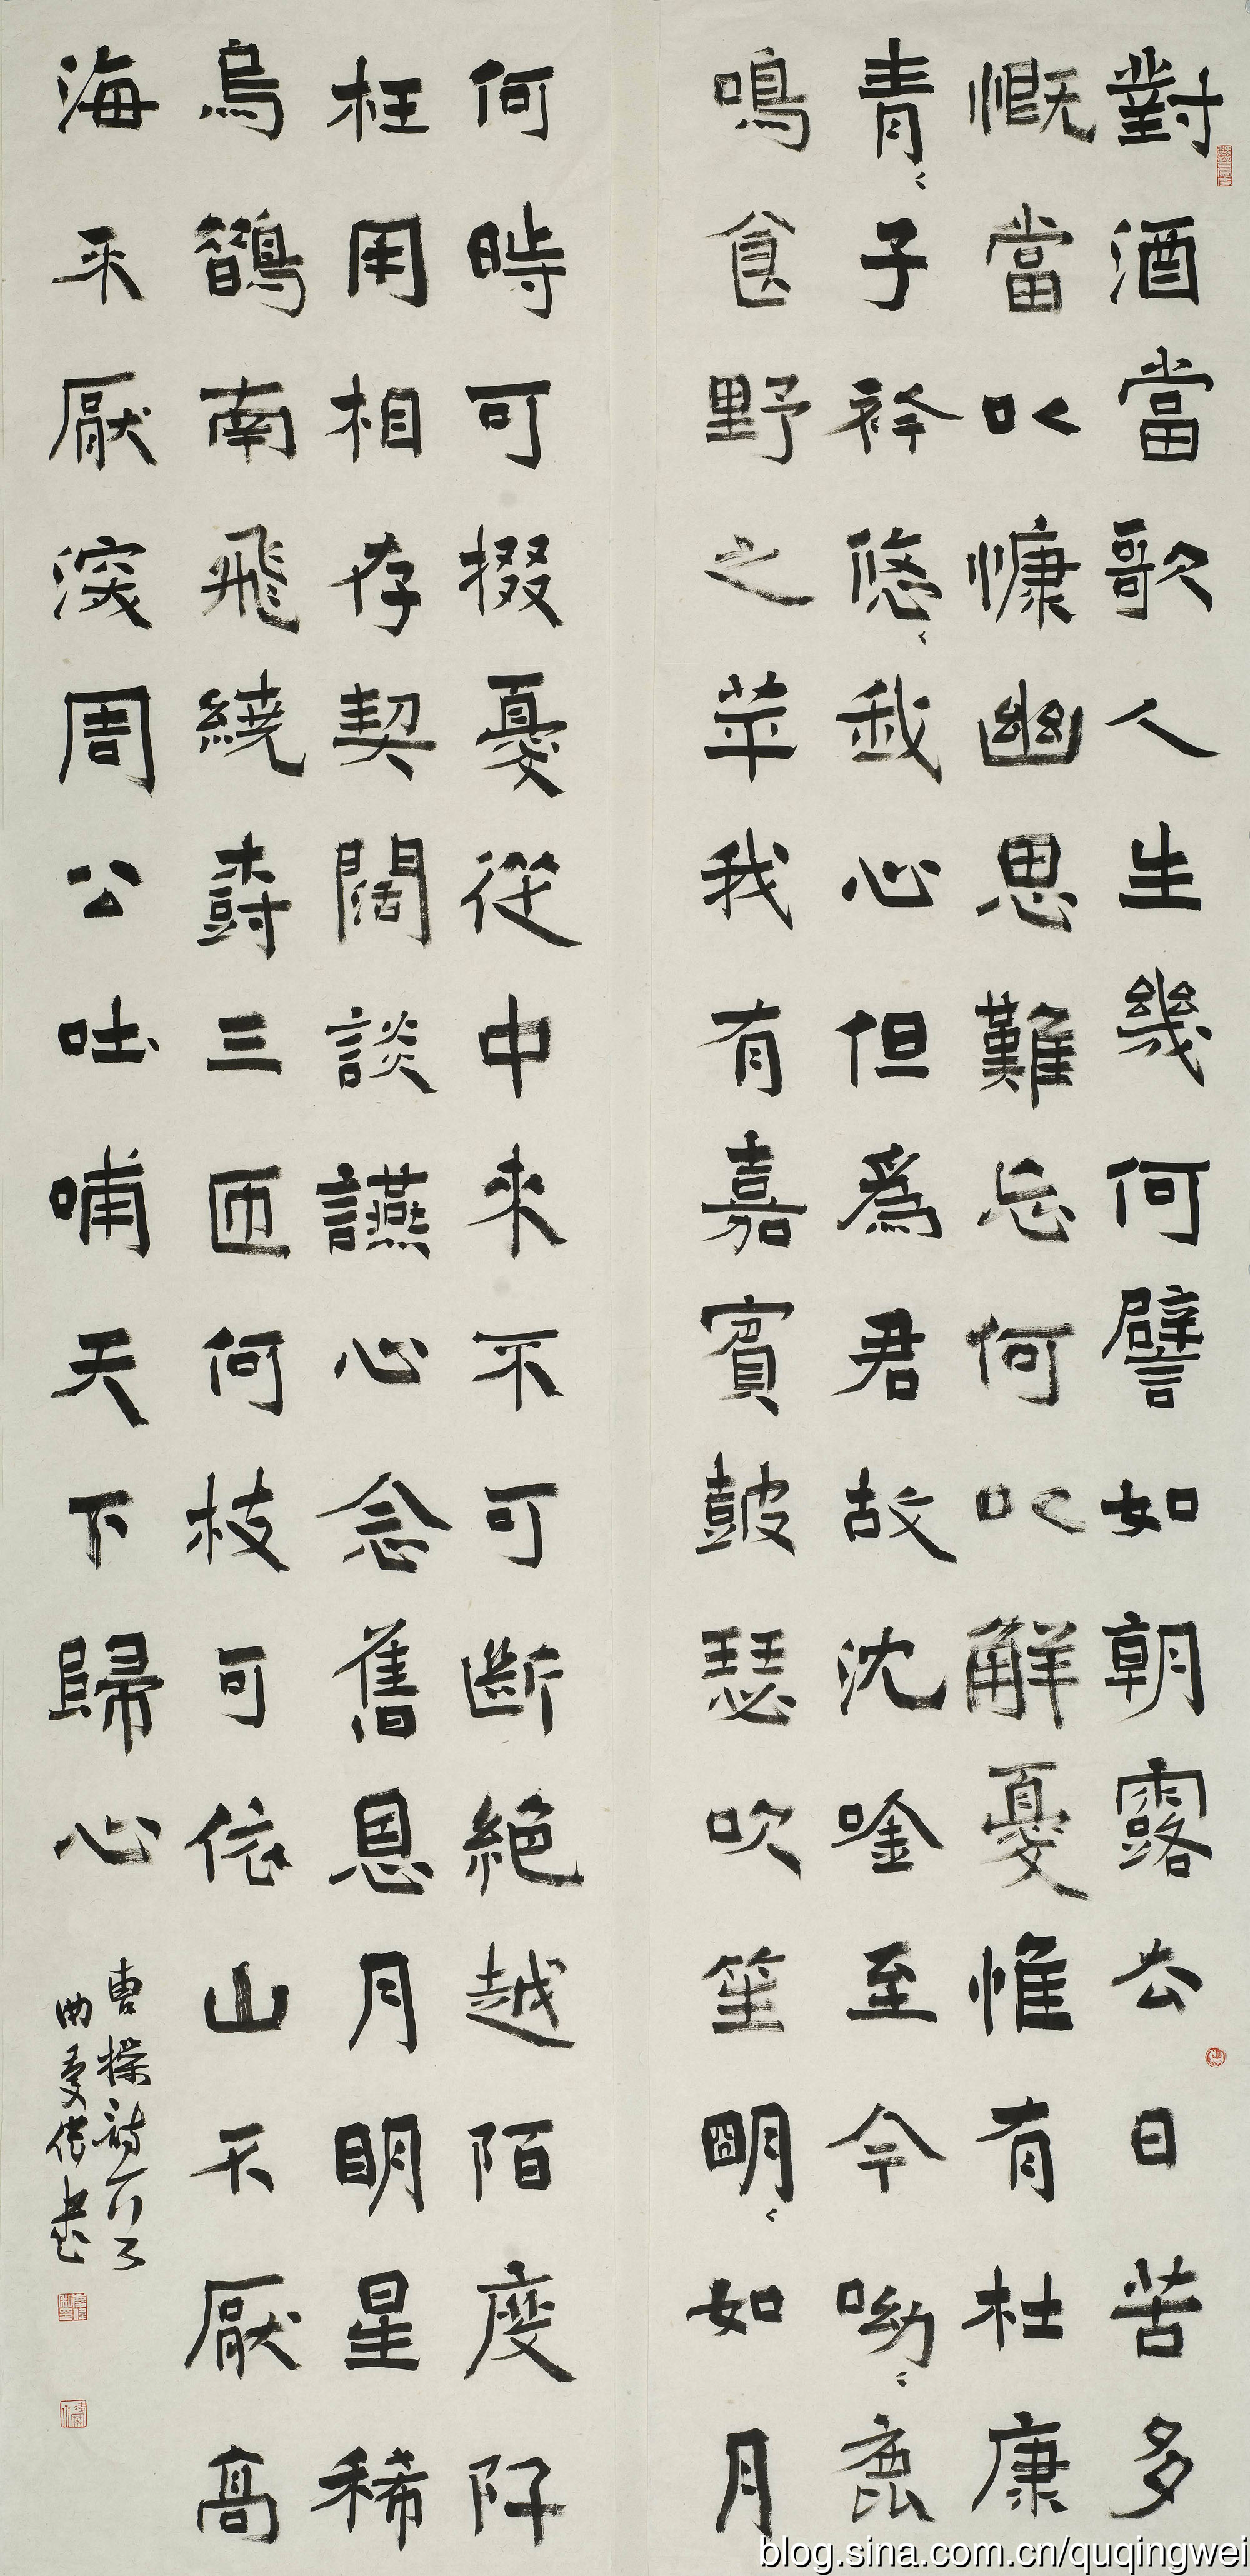 對酒當歌人生幾何譬如朝露去日苦多
慨當以慷幽思難忘何以解憂惟有杜康
青〻子衿悠〻我心但為君故沈唫至今呦〻鹿
鳴食野之苹我有嘉賓鼓瑟吹笙明〻如月
何時可掇憂從中來不可斷絕越陌度阡
枉用相存契闊談讌心念舊恩月明星稀
烏鵲南飛繞樹三匝何枝可依山不厭高
海不厭深周公吐哺天下歸心
曹操詩
曲慶偉書
blog.sina.com.cn/quqingwei